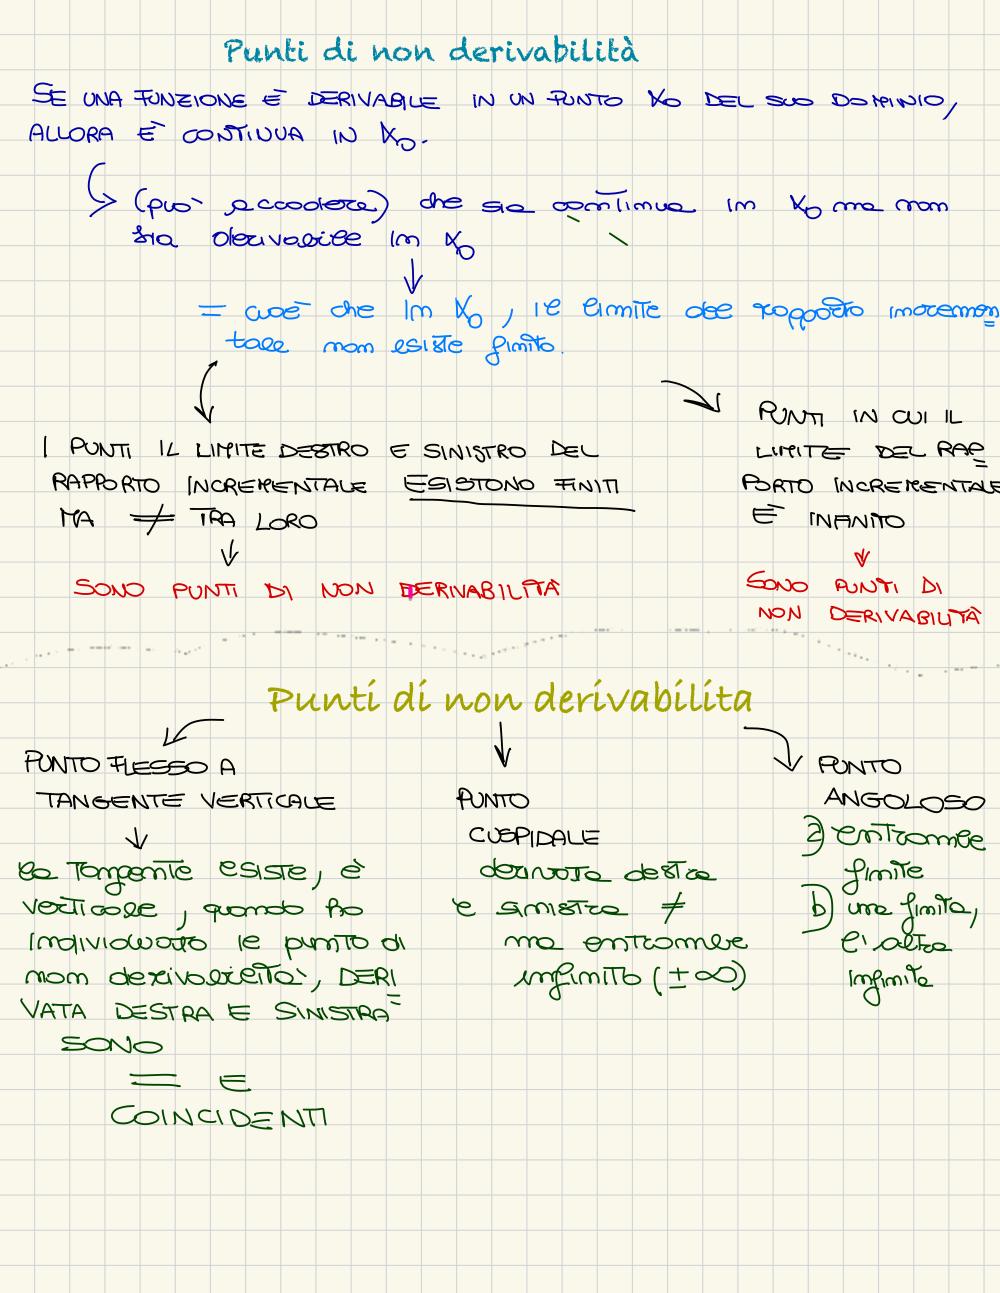 Punti di non derivabilità
SE UNA FUNZIONE È DERIVABILE IN UN PUNTO X₀ DEL SUO DOMINIO,
ALLORA È CONTINUA IN X₀.
(può accadere) che sia continua in X₀ ma non
sia derivabile in X₀
= cioè che in X₀, il limite del rapporto incremen=
tale non esiste finito.
I PUNTI IL LIMITE DESTRO E SINISTRO DEL
RAPPORTO INCREMENTALE ESISTONO FINITI
MA ≠ TRA LORO
SONO PUNTI DI NON DERIVABILITÀ
PUNTI IN CUI IL
LIMITE DEL RAP=
PORTO INCREMENTALE
È INFINITO
SONO PUNTI DI
NON DERIVABILITÀ
Punti di non derivabilita
PUNTO FLESSO A
TANGENTE VERTICALE
la tangente esiste, è
verticale, quando ho
individuato il punto di
non derivabilità, DERI=
VATA DESTRA E SINISTRA
SONO
= E
COINCIDENTI
PUNTO
CUSPIDALE
derivata destra
e sinistra ≠
ma entrambe
infinito (±∞)
PUNTO
ANGOLOSO
a) entrambe
finite
b) una finita,
l'altra
infinita